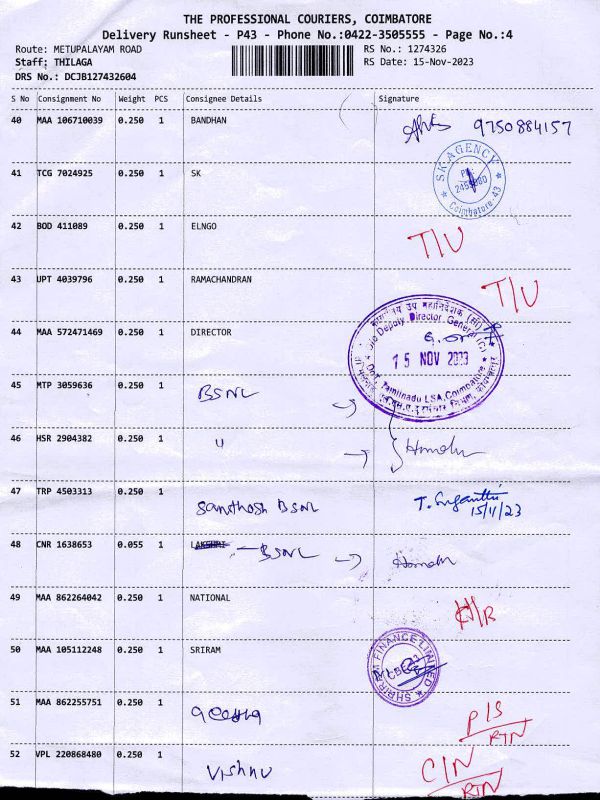 THE PROFESSIONAL COURIERS, COIMBATORE
Delivery Runsheet - P43 - Phone No.:0422-3505555 - Page No.:4
Route: METUPALAYAM ROAD RS No.: 1274326
Staff: THILAGA RS Date: 15-Nov-2023
DRS No.: DCJB127432604
S No Consignment No Weight PCS Consignee Details Signature
40 MAA 106710039 0.250 1 BANDHAN 9750884157
41 TCG 7024925 0.250 1 SK
SK AGENCY
Coimbatore-43
42 BOD 411089 0.250 1 ELNGO T/U
43 UPT 4039796 0.250 1 RAMACHANDRAN T/U
44 MAA 572471469 0.250 1 DIRECTOR
Deputy Director General
15 NOV 2023
DoT, Tamilnadu LSA, Coimbatore
45 MTP 3059636 0.250 1 BSNL
46 HSR 2904382 0.250 1 "
47 TRP 4503313 0.250 1 Santhosh BSNL T. Suganthi
15/11/23
48 CNR 1638653 0.055 1 LAKSHMI - BSNL
49 MAA 862264042 0.250 1 NATIONAL
50 MAA 105112248 0.250 1 SRIRAM
SHRIRAM FINANCE LIMITED
51 MAA 862255751 0.250 1 P/S
RTN
52 VPL 220868480 0.250 1 Vishnu C/N
RTN